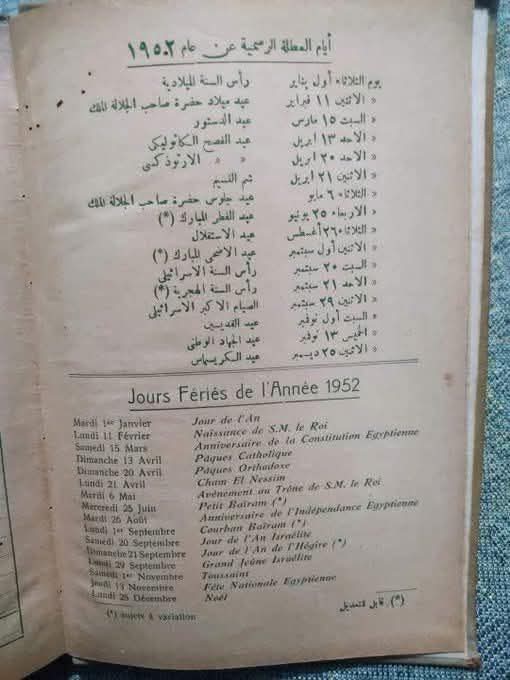 أيام العطلة الرسمية عن عام ١٩٥٢
يوم الثلاثاء أول يناير رأس السنة الميلادية
» الاثنين ١١ فبراير عيد ميلاد حضرة صاحب الجلالة الملك
» السبت ١٥ مارس عيد الدستور
» الاحد ١٣ ابريل عيد الفصح الكاثوليكي
» الاحد ٢٠ ابريل » » الارثوذكسى
» الاثنين ٢١ ابريل شم النسيم
» الثلاثاء ٦ مايو عيد جلوس حضرة صاحب الجلالة الملك
» الاربعاء ٢٥ يونيو عيد الفطر المبارك (*)
» الثلاثاء ٢٦ أغسطس عيد الاستقلال
» الاثنين أول سبتمبر عيد الاضحى المبارك (*)
» السبت ٢٠ سبتمبر رأس السنة الاسرائيلى
» الاحد ٢١ سبتمبر رأس السنة الهجرية (*)
» الاثنين ٢٩ سبتمبر الصيام الاكبر الاسرائيلى
» السبت أول نوفمبر عيد القديسين
» الخميس ١٣ نوفمبر عيد الجهاد الوطنى
» الاثنين ٢٥ ديسمبر عيد السكريسماس
Jours Fériés de l'Année 1952
Mardi 1er Janvier Jour de l'An
Lundi 11 Février Naissance de S.M. le Roi
Samedi 15 Mars Anniversaire de la Constitution Egyptienne
Dimanche 13 Avril Pâques Catholique
Dimanche 20 Avril Pâques Orthodoxe
Lundi 21 Avril Cham El Nessim
Mardi 6 Mai Avènement au Trône de S.M. le Roi
Mercredi 25 Juin Petit Baïram (*)
Mardi 26 Août Anniversaire de l'Indépendance Egyptienne
Lundi 1er Septembre Courban Baïram (*)
Samedi 20 Septembre Jour de l'An Israélite
Dimanche 21 Septembre Jour de l'An de l'Hégire (*)
Lundi 29 Septembre Grand Jeûne Israélite
Samedi 1er Novembre Toussaint
Jeudi 13 Novembre Fête Nationale Egyptienne
Lundi 25 Décembre Noël
(*) sujets à variation (*) قابل لتعديل